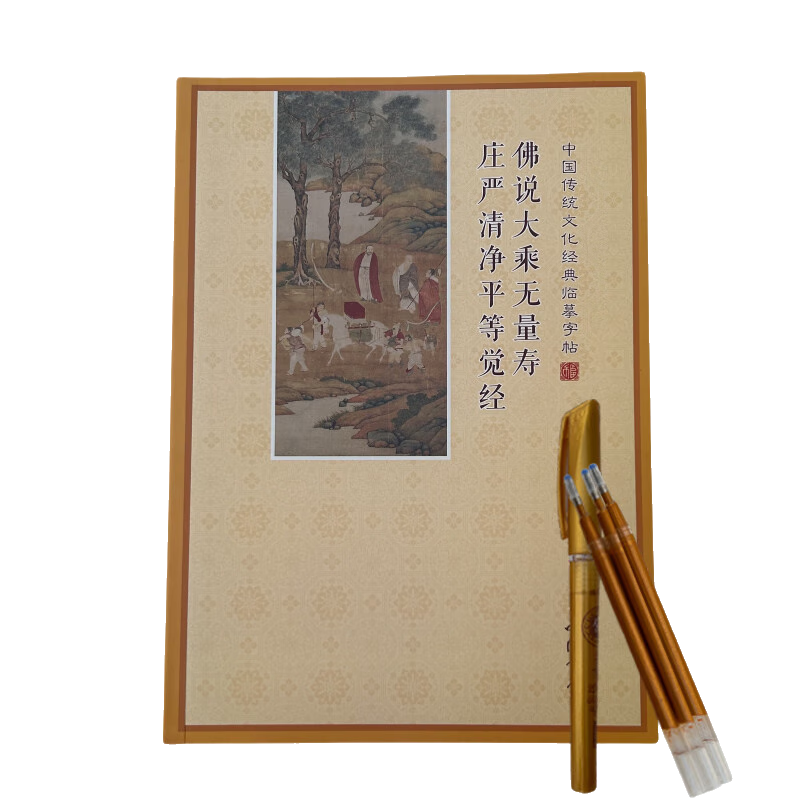 中国传统文化经典临摹字帖
佛说大乘无量寿
庄严清净平等觉经